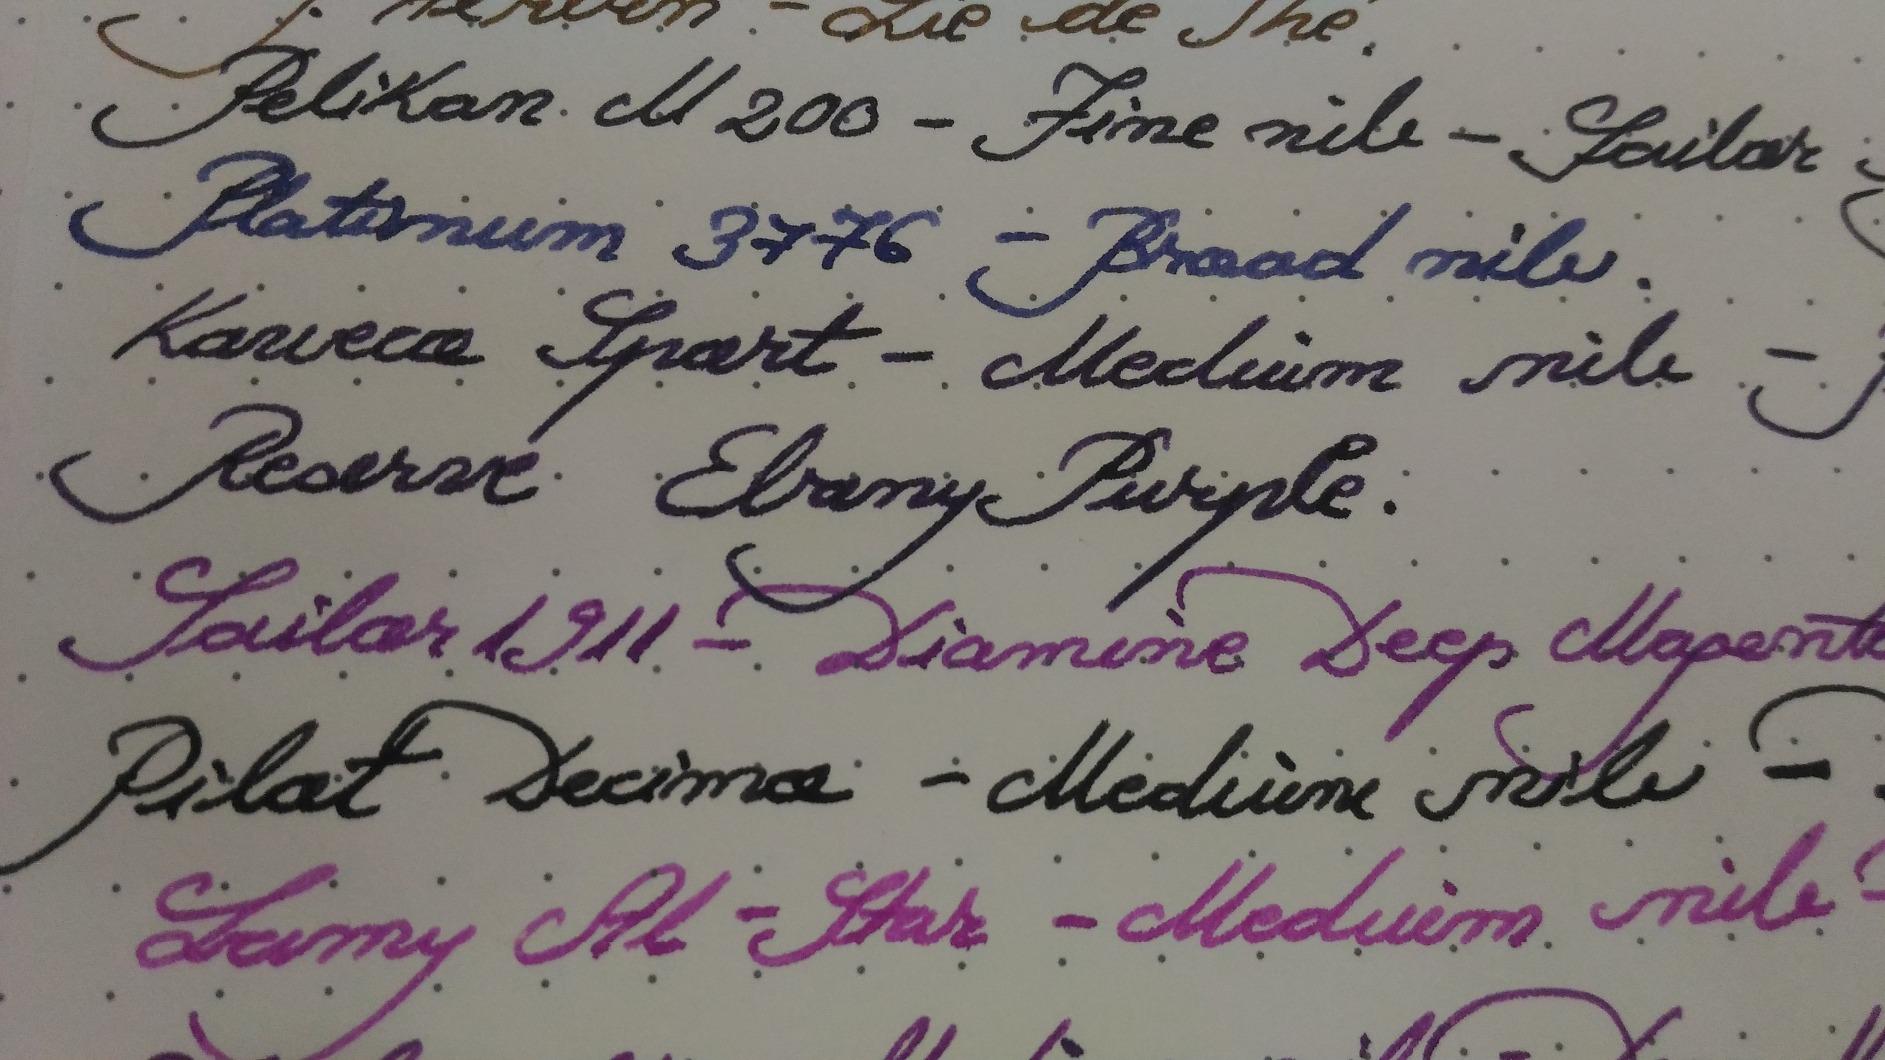 J. Herbin - Lie de Thé.
Pelikan M200 - Fine nib - Sailor
Platinum 3776 - Broad nib.
Kaweco Sport - Medium nib -
Reserve Ebony Purple.
Sailor 1911 - Diamine Deep Magenta
Pilot Decimo - Medium nib -
Lamy Al-Star - Medium nib -